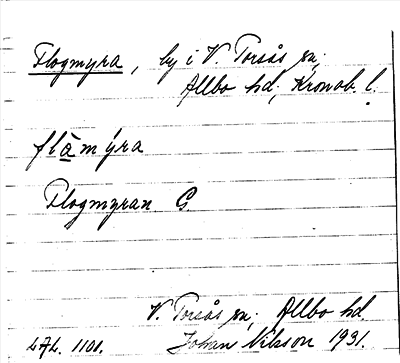 Flogmyra, by i V. Torsås sn;
Allbo hd, Kronob. l.
flàmýra
Flogmyran G.
V. Torsås sn; Allbo hd.
LAL. 1101. Johan Nilsson 1931.